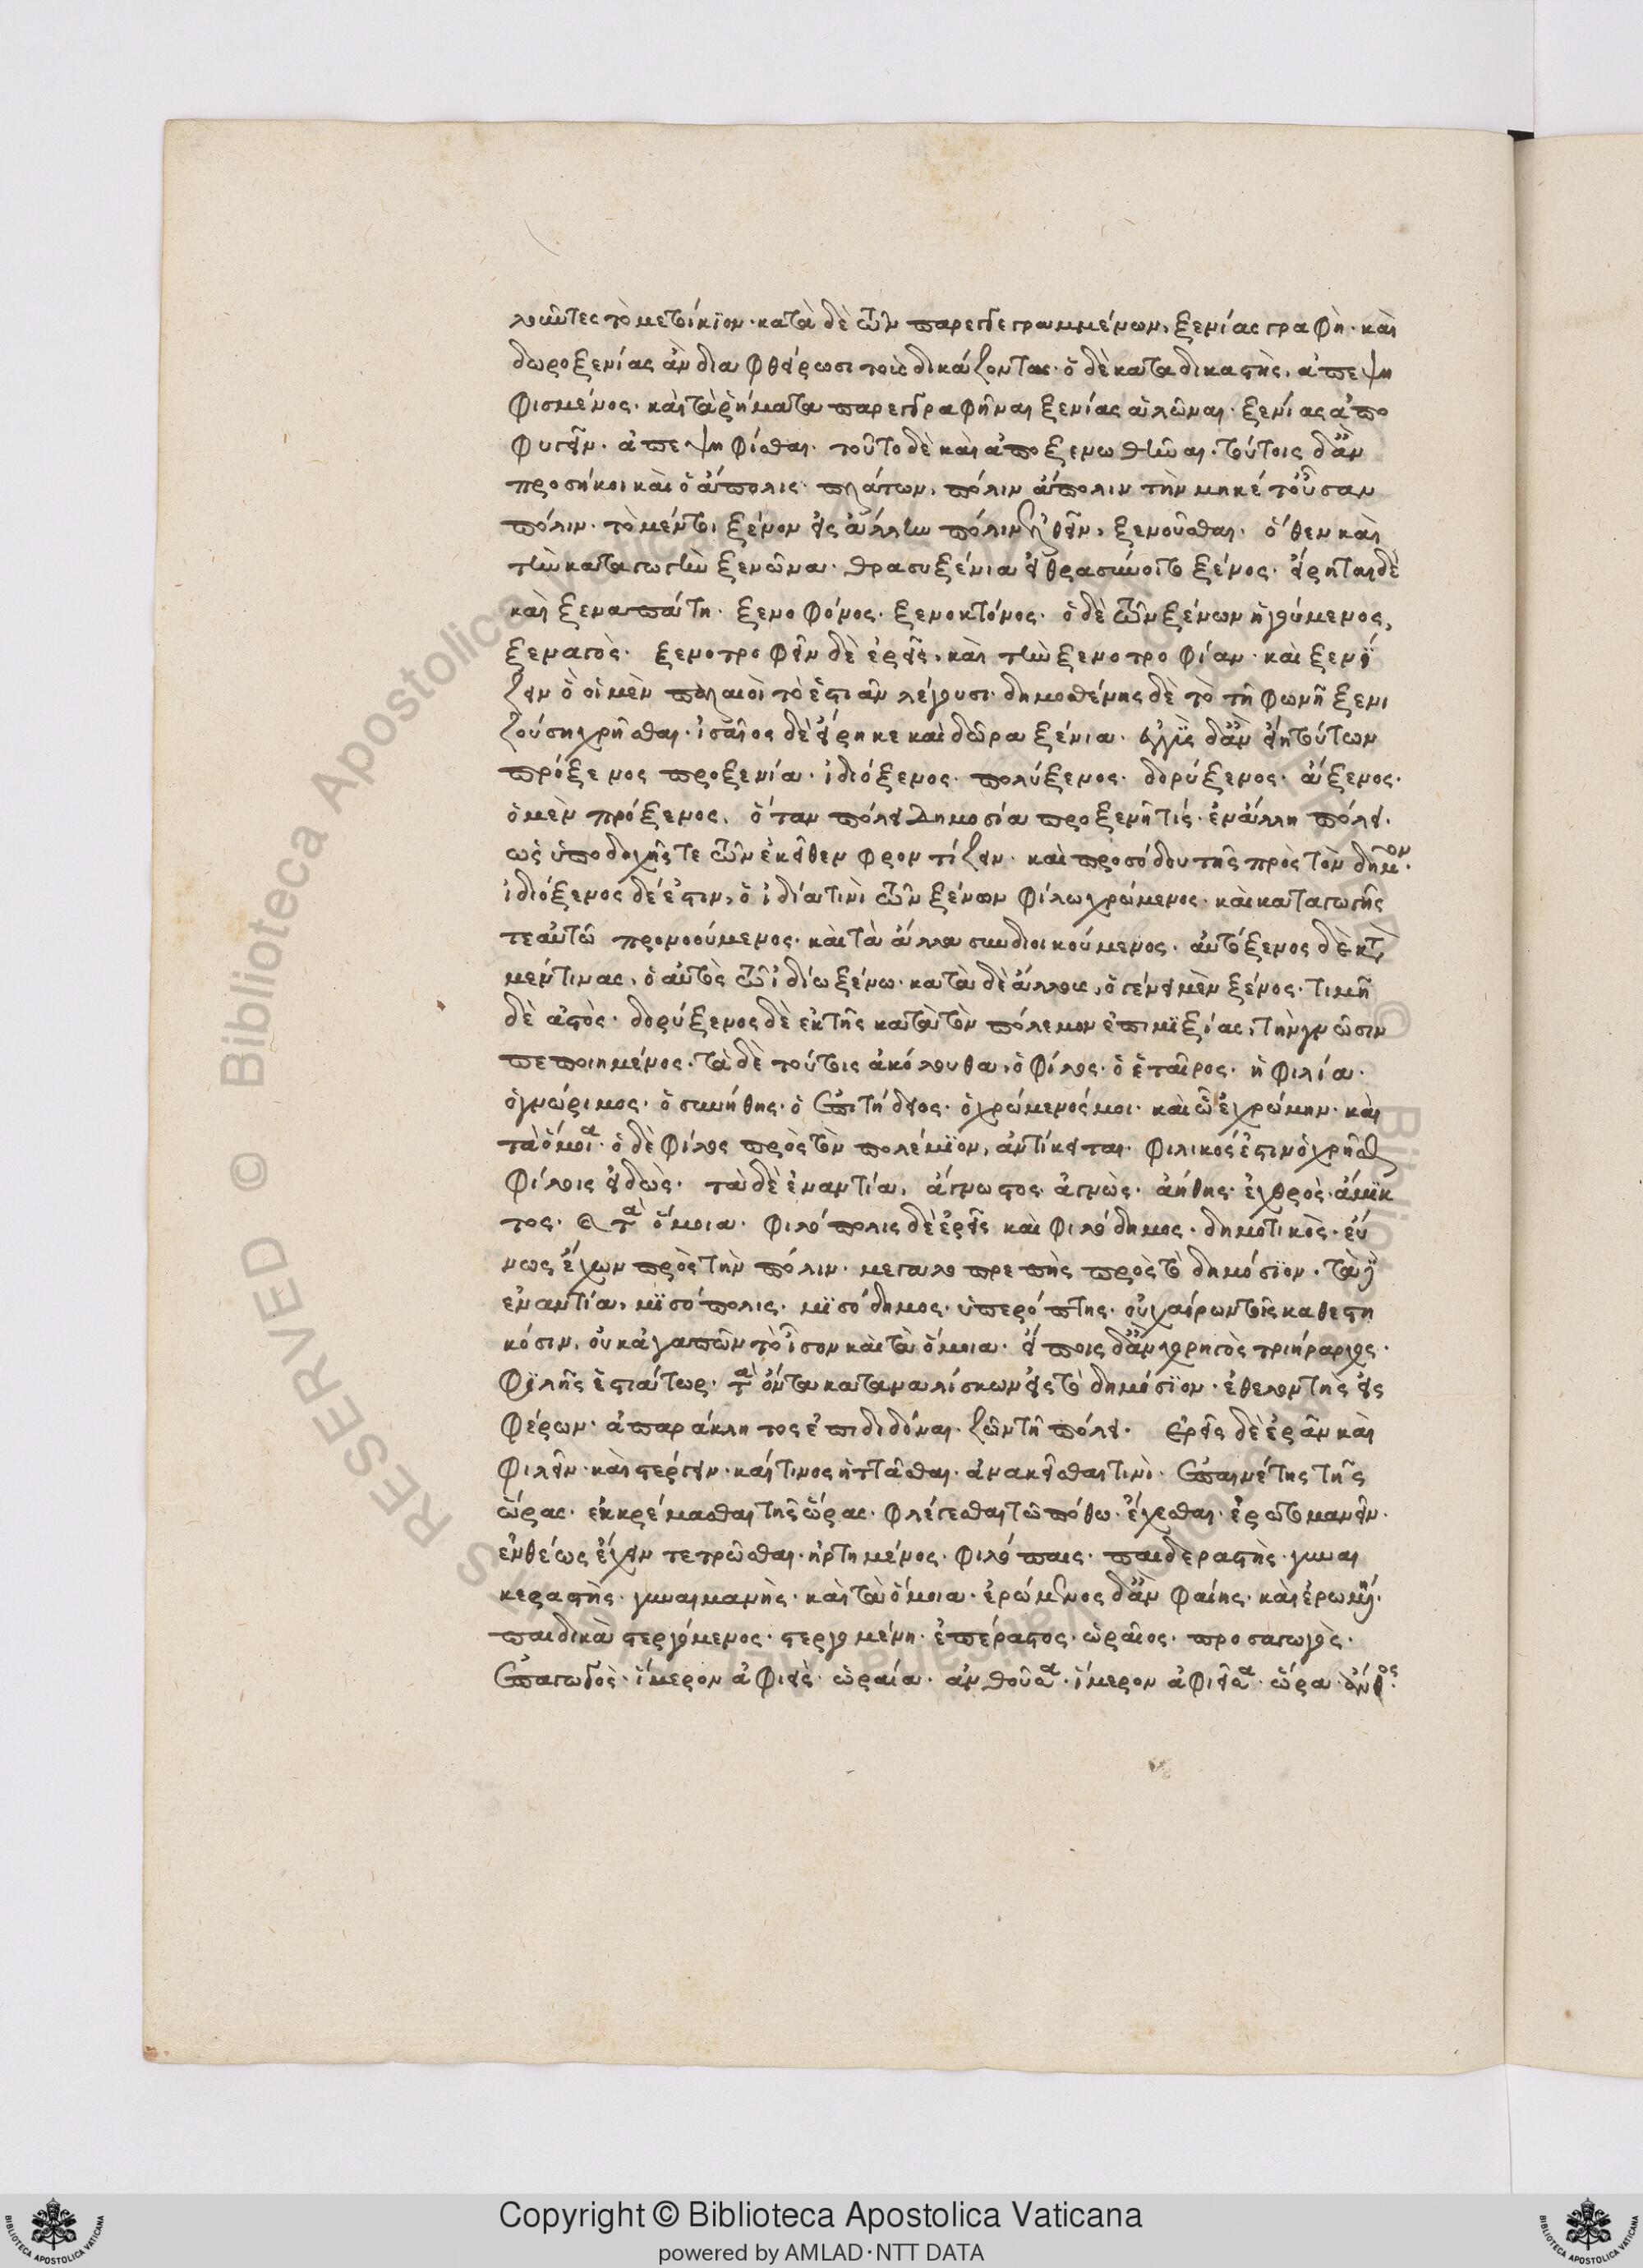 λοῦντες τὸ μετοίκϊον· κατὰ δὲ τῶν παρεγγεγραμμένων, ξενίας γραφὴ· καὶ
δωροξενίας ἂν διαφθείρωσι τοὺς δικάζοντας· ὁ δὲ καταδικαστὴς, ἀπεψη
φισμένος· καὶ τὰ ῥήματα παρεγγραφῆναι ξενίας ἁλῶναι· ξενίας ἀπο
φυγεῖν· ἀπεψηφίσθαι· τοῦτο δὲ καὶ ἀποξενωθῆναι· τούτοις δ' ἂν
προσήκοι καὶ ὁ ἄπολις· πλάτων, πόλιν ἄπολιν τὴν μηκέτ' οὖσαν
πόλιν· τὸ μέντοι ξένον εἰς ἄλλην πόλιν ἐλθεῖν, ξενοῦσθαι· ὅθεν καὶ
τὴν καταγωγὴν ξενῶνα· θρασυξένια εἰ θρασύνοιτο ξένος· εἴρηται δὲ
καὶ ξεναπάτη· ξενοφόνος· ξενοκτόνος· ὁ δὲ τῶν ξένων ἡγούμενος,
ξεναγὸς· ξενοτροφεῖν δὲ ἐρεῖς, καὶ τὴν ξενοτροφίαν· καὶ ξενί
ζειν ὃ οἱ μὲν πολλοὶ τὸ ἑστιᾶν λέγουσι· δημοσθένης δὲ τὸ τῇ φωνῇ ξενι
ζούσῃ χρῆσθαι· ἰσαῖος δὲ εἴρηκε καὶ δῶρα ξένια· ἐγγὺς δ' ἂν εἴη τούτων
πρόξενος προξενία· ἰδιόξενος· πολύξενος· δορύξενος· ἄξενος·
ὁ μὲν πρόξενος, ὅταν πόλει δημοσία προξενῆ τίς· ἐν ἄλλη πόλει·
ὡς ὑποδοχῆς τε τῶν ἐκεῖθεν φροντίζειν· καὶ προσόδου τῆς πρὸς τὸν δῆμον·
ἰδιόξενος δέ ἐστιν, ὁ ἰδία τινὶ τῶν ξένων φίλω χρώμενος· καὶ καταγωγῆς
τε αὐτῶ προνοούμενος· καὶ τὰ ἄλλα συνδιοικούμενος· αὐτόξενος δὲ κτ
μέν τινας, ὁ αὐτὸς τῶ ἰδίω ξένω· κατὰ δὲ ἄλλους, ὁ γένει μὲν ξένος· τιμῆ
δὲ ἀστὸς· δορύξενος δὲ ἐκ τῆς κατὰ τὸν πόλεμον ἐπιμϊξίας, τὴν γνῶσιν
πεποιημένος· τὰ δὲ τούτοις ἀκόλουθα, ὁ φίλος· ὁ ἑταῖρος· ἡ φιλία·
ὁ γνώριμος· ὁ συνήθης· ὁ ἐπιτήδειος· ὁ χρώμενός μοι· καὶ ὧ ἐχρώμην· καὶ
τὰ ὅμοια· ὁ δὲ φίλος πρὸς τὸν πολέμϊον, ἀντίκειται· φιλικός ἐστιν ὁ χρῆσθ
φίλοις εἰδὼς· τὰ δὲ ἐναντία, ἄγνωστος ἀγνὼς· ἀήθης· ἐχθρὸς· ἄμϊκ
τος· καὶ τὰ ὅμοια· φιλόπολις δὲ ἐρεῖς καὶ φιλόδημος· δημοτικὸς· εὔ
νως ἔχων πρὸς τὴν πόλιν· μεγαλοπρεπὴς πρὸς τὸ δημόσϊον·
ἐναντία, μϊσόπολις· μϊσόδημος· ὑπερόπτης· οὐ χαίρων τοῖς καθεστη
κόσιν, οὐκ ἀγαπῶν τὸ ἴσον καὶ τὰ ὅμοια· εἴποις δ' ἂν χορηγὸς τριήραρχος·
φϊλῆς ἑστιάτωρ· τὰ ὄντα καταναλίσκων εἰς τὸ δημόσϊον· ἐθελοντὴς εἰς
φέρων· ἀπαράκλητος ἐπιδιδόναι· ζῶν τῆ πόλει· ἐρεῖς δὲ ἐρᾶν καὶ
φιλεῖν· καὶ στέργειν· καί τινος ἡττᾶσθαι· ἀνακεῖσθαι τινὶ· ἐπαινέτης τῆς
ὥρας· ἐκκρέμασθαι τῆς ὥρας· φλέγεσθαι τῶ πόθω· ἔχεσθαι· ἐρωτομανεῖν·
ἐνθέως ἔχειν τετρῶσθαι· ἠρτημένος· φιλόπαις· παιδεραστὴς· γυναι
κεραστὴς· γυναιμανὴς· καὶ τὰ ὅμοια· ἐρώμενος δ' ἂν φαίης· καὶ ἐρωμένη·
παιδικὰ στεργόμενος· στεργομένη· ἐπέραστος· ὡραῖος· προσαγωγὸς·
ἐπαγωγὸς· ἵμερον ἀφιεὶς· ὡραία· ἀνθοῦσα· ἵμερον ἀφιεῖσα· ὥρα
Copyright © Biblioteca Apostolica Vaticana
powered by AMLAD·NTT DATA